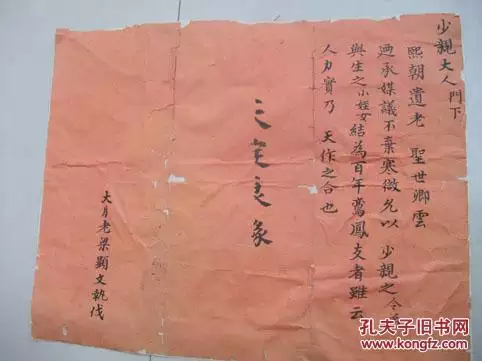 少親大人門下
熙朝遺老 聖世卿雲
迺承媒議不棄寒微允以 少親之令
與生之小姪女結為百年鸞鳳交者雖云
人力實乃 天作之合也
大月老梁顯文執伐
孔夫子旧书网
KONGFZ.COM